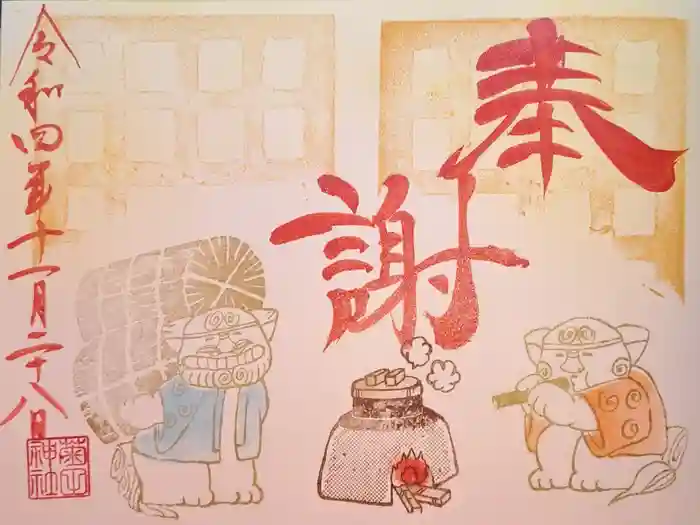 奉
謝
令和四年十一月二十八日
神社